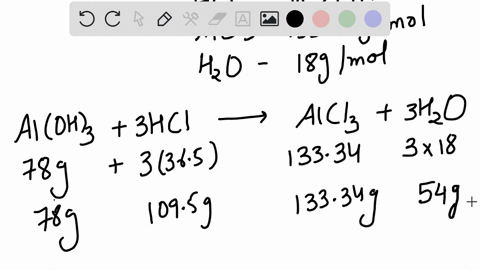 mol
H₂O - 18g/mol
Al(OH)₃ + 3HCl ⟶ AlCl₃ + 3H₂O
78g + 3(36.5) 133.34 3×18
78g 109.5g 133.34g 54g